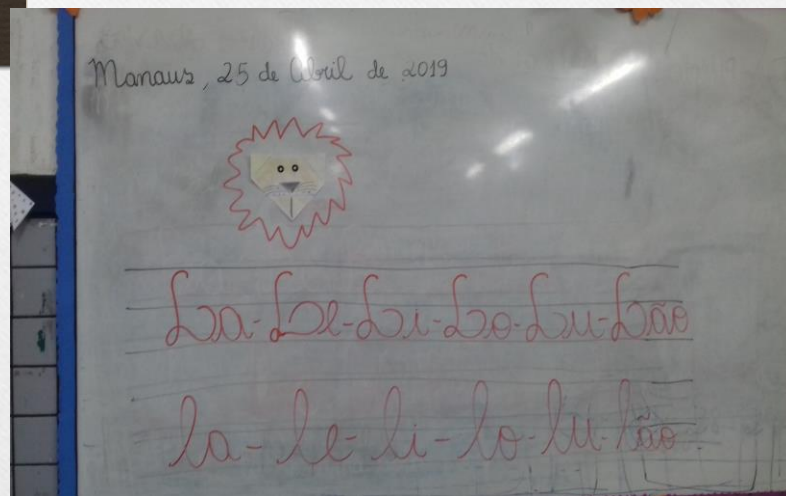 Manaus, 25 de Abril de 2019
La-Le-Li-Lo-Lu-Lão
la-le-li-lo-lu-lão